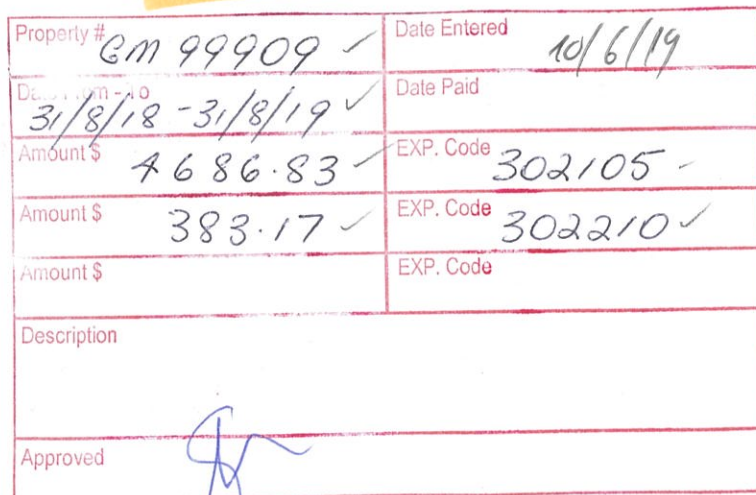 Property # GM 99909 ✓ Date Entered 10/6/19
Date From - To 31/8/18 - 31/8/19 ✓ Date Paid
Amount $ 4686.83 ✓ EXP. Code 302105 -
Amount $ 383.17 ✓ EXP. Code 302210 ✓
Amount $ EXP. Code
Description
Approved